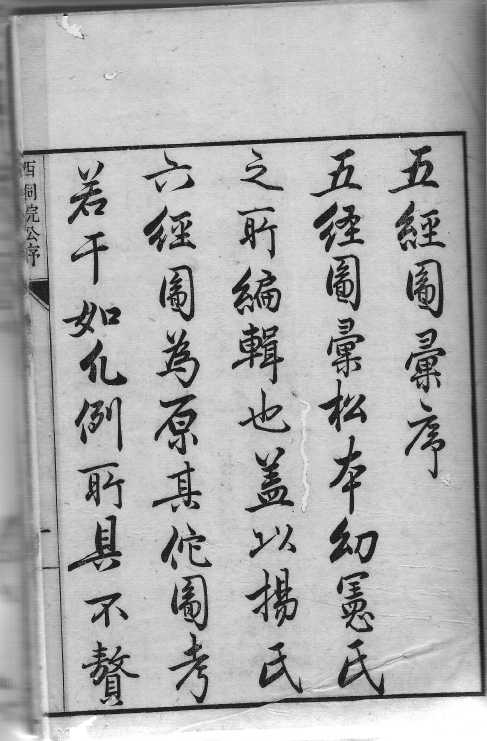 五經圖彙序
五経圖彙松本幼憲氏
之所編輯也蓋以揚氏
六經圖為原其佗圖考
若干如凡例所具不贅
西洞院公序